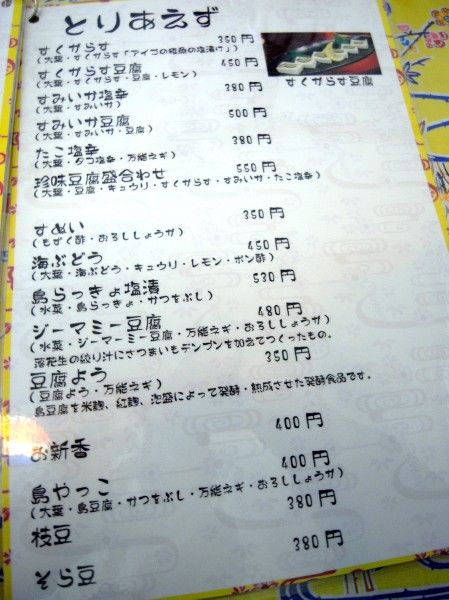 とりあえず
すくがらす 350円
(大葉・すくがらす「アイゴの稚魚の塩漬け」)
すくがらす豆腐 450円
(大葉・すくがらす・豆腐・レモン)
すくがらす豆腐
すみいか塩辛 380円
(大葉・すみいか)
すみいか豆腐 500円
(大葉・すみいか・豆腐)
たこ塩辛 380円
(大葉・タコ塩辛・万能ネギ)
珍味豆腐盛合わせ 550円
(大葉・豆腐・キュウリ・すくがらす・すみいか・たこ塩辛)
すぬい 350円
(もずく酢・おろししょうが)
海ぶどう 450円
(大葉・海ぶどう・キュウリ・レモン・ポン酢)
島らっきょ塩漬 530円
(水菜・島らっきょ・かつをぶし)
ジーマミー豆腐 480円
(水菜・ジーマミー豆腐・万能ネギ・おろししょうが)
落花生の絞り汁にさつまいもデンプンを加えてつくったもの。
豆腐よう 350円
(豆腐よう・万能ネギ)
島豆腐を米麹、紅麹、泡盛によって発酵・熟成させた発酵食品です。
お新香 400円
島やっこ 400円
(大葉・島豆腐・かつをぶし・万能ネギ・おろししょうが)
枝豆 380円
そら豆 380円